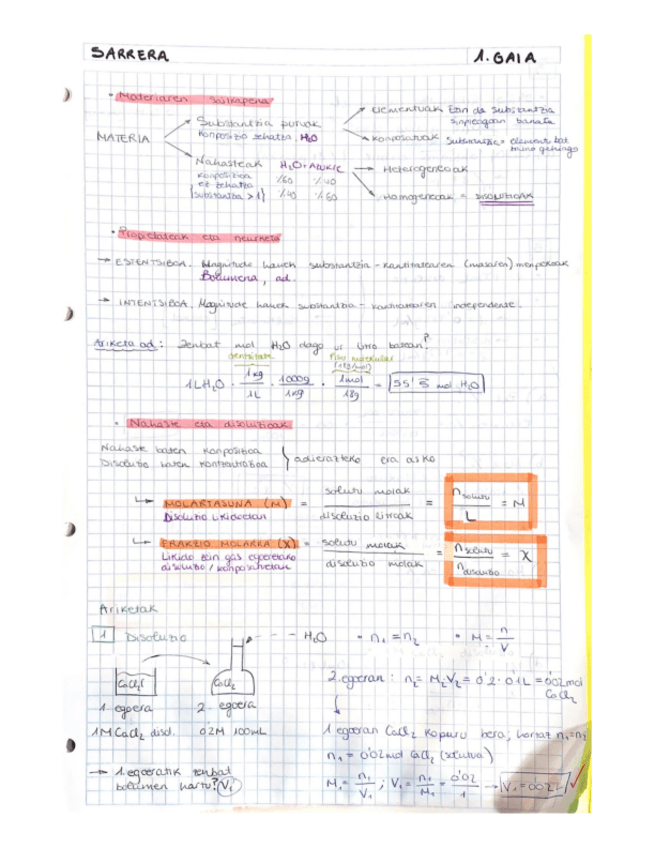 SARRERA 1. GAIA
• Materiaren sailkapena
MATERIA
Substantzia puruak
Konposizio zehatza. H₂O
Elementuak Ezin da substantzia
sinpleagoan banatu
Konposatuak Substantzia = elementu bat
baino gehiago
Nahasteak H₂O + AZUKRE
Konposizioa %60 %40
ez zehatza
(substantzia > 1) %40 %60
Heterogeneoak
Homogeneoak = DISOLUZIOAK
• Propietateak eta neurketa
→ ESTENTSIBOA. Magnitude hauek substantzia-kantitatearen (masaren) menpekoak
Bolumena, ad.
→ INTENTSIBOA. Magnitude hauek substantzia-kantitatearen independente.
Ariketa ad: Zenbat mol H₂O dago ur litro batean?
dentsitatea pisu molekular
(18g/mol)
1L H₂O · 1kg/1L · 1000g/1kg · 1mol/18g = 55'5 mol H₂O
• Nahaste eta disoluzioak
Nahaste baten konposizioa
Disoluzio baten kontzentrazioa } adierazteko era asko
↳ MOLARTASUNA (M) = solutu molak / disoluzio litroak = n solutu / L = M
Disoluzio likidoetan
↳ FRAKZIO MOLARRA (X) = solutu molak / disoluzio molak = n solutu / n disoluzio = X
Likido edo gas egoerako
disoluzio / konposatuetan
Ariketak
1 Disoluzio H₂O • n₁ = n₂ • M = n/V
CaCl₂ CaCl₂
1. egoera 2. egoera
1M CaCl₂ disol. 0'2M 100mL
→ 1. egoeratik zenbat
bolumen hartu? V₁
2. egoeran: n₂ = M₂·V₂ = 0'2 · 0'1L = 0'02 mol
CaCl₂
1 egoeran CaCl₂ kopuru bera, hortaz n₁=n₂
n₁ = 0'02 mol CaCl₂ (solutua)
M₁ = n₁/V₁ ; V₁ = n₁/M₁ = 0'02/1 → V₁ = 0'02L